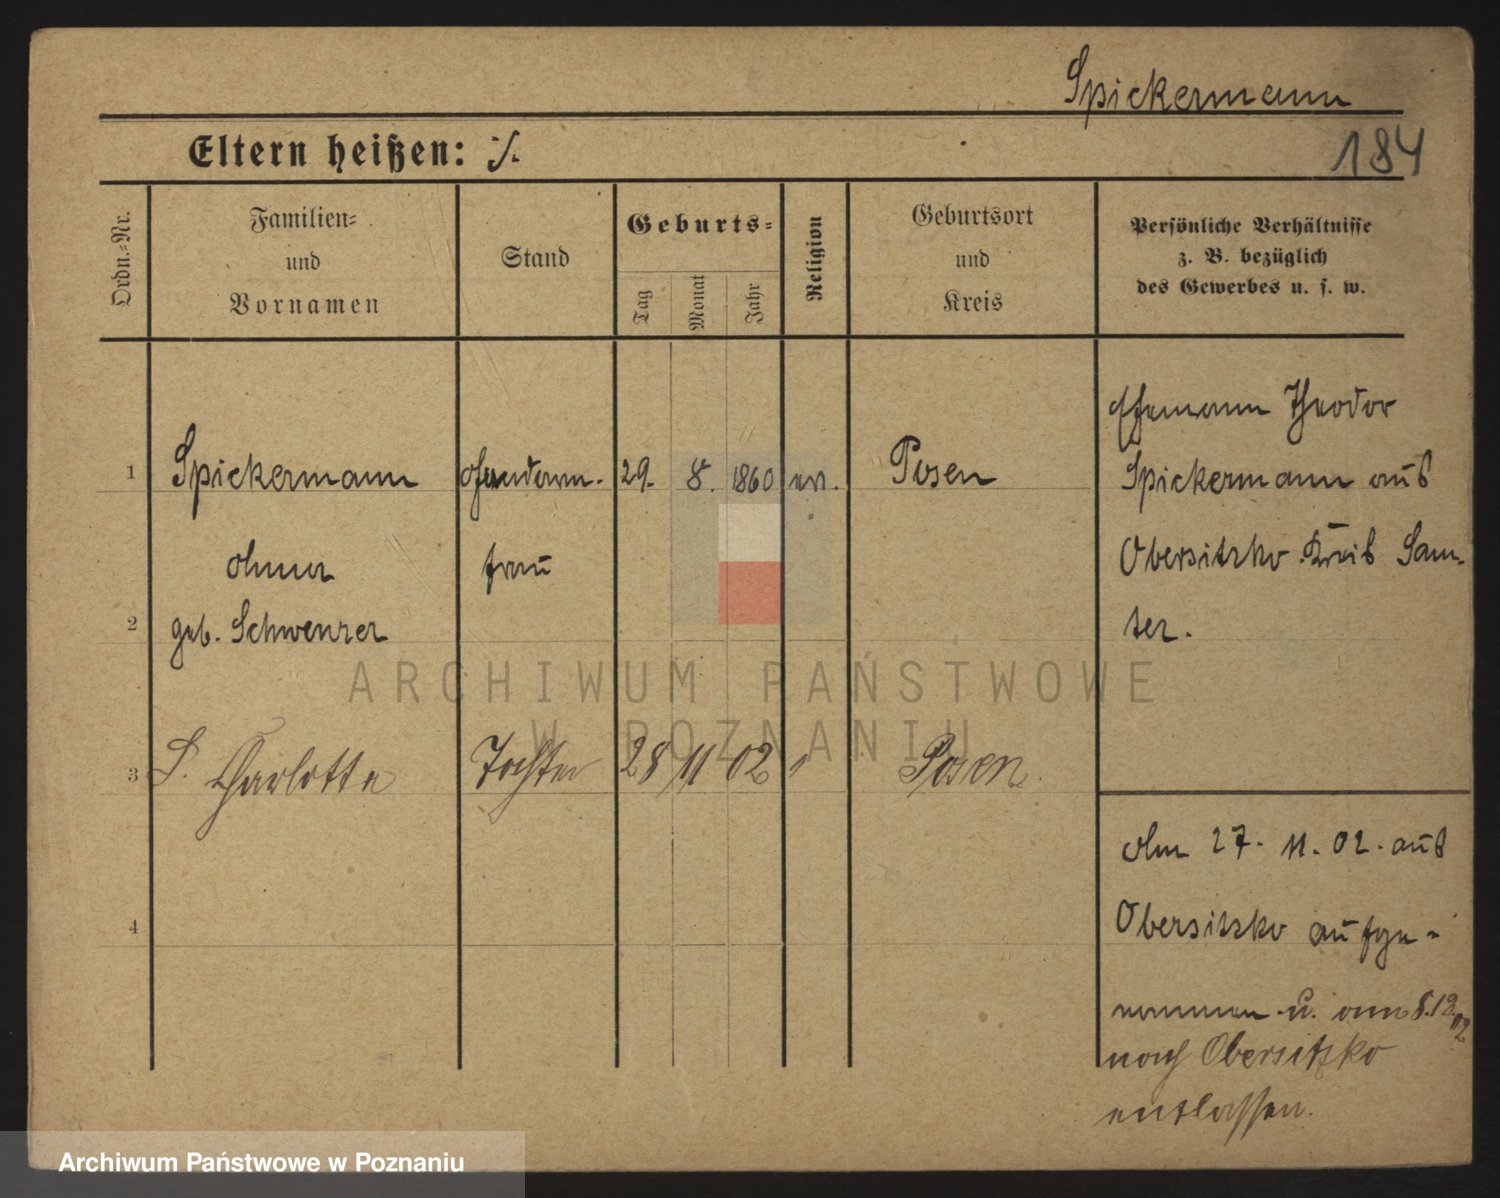 Spickermann
184
Eltern heißen: ./.
Ordn.-Nr.
Familien-
und
Vornamen
Stand
Geburts-
Tag
Monat
Jahr
Religion
Geburtsort
und
Kreis
Persönliche Verhältnisse
z. B. bezüglich
des Gewerbes u. s. w.
1 Spickermann Gendarm. 29. 8. 1860 ev. Posen
Anna frau
2 geb. Schwenzer
3 S. Charlotte Tochter 28 11 02 " Posen.
4
Ehemann Theodor
Spickermann aus
Obersitzko Kreis Sam-
ter.
Am 27. 11. 02. aus
Obersitzko aufge-
nommen u. am 8.12.02
nach Obersitzko
entlassen.
ARCHIWUM PAŃSTWOWE
W POZNANIU
Archiwum Państwowe w Poznaniu